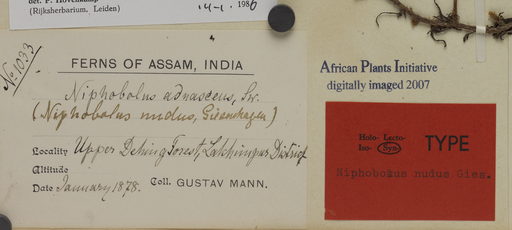 det. P. Hovenkamp
(Rijksherbarium, Leiden)
14-1. 1986
No. 1033
FERNS OF ASSAM, INDIA
Niphobolus adnascens, Sw.
(Niphobolus nudus, Giesenhagen)
Locality Upper Dehing Forest, Lakhimpur District
Altitude
Date January 1878. Coll. GUSTAV MANN.
African Plants Initiative
digitally imaged 2007
Holo- Lecto-
Iso- Syn- TYPE
Niphobolus nudus Gies.